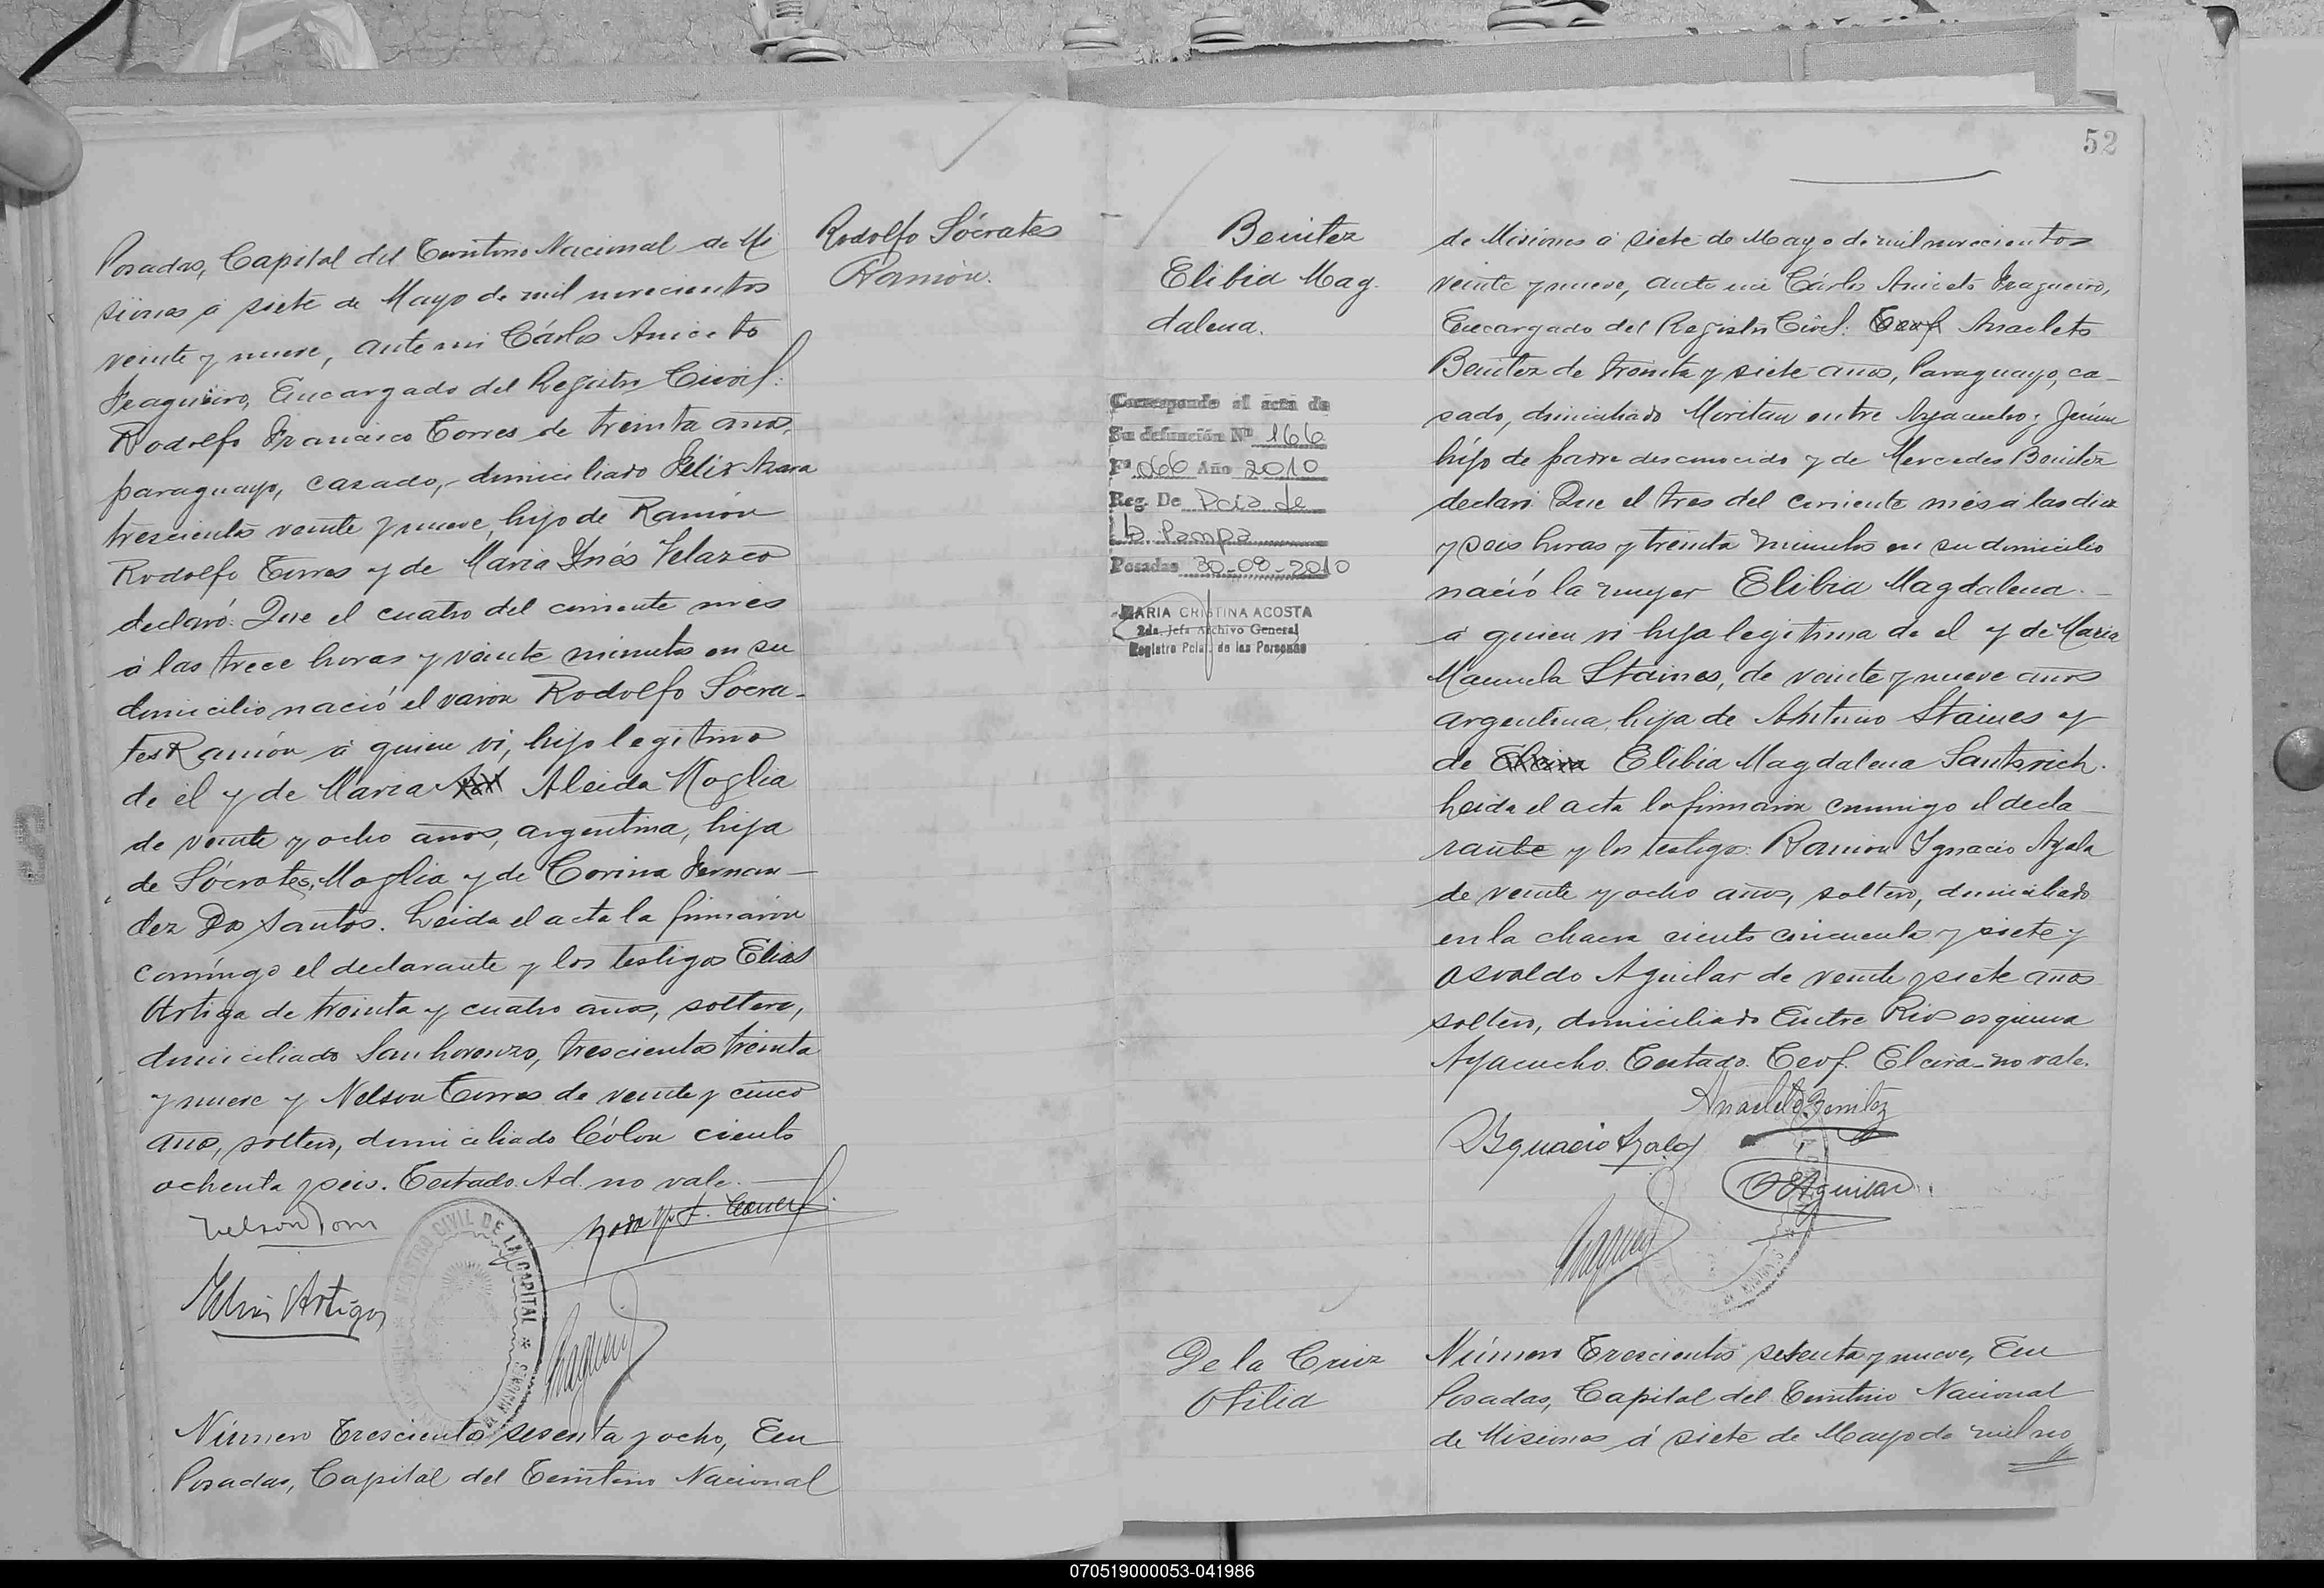 Posadas, Capital del Territorio Nacional de Mi
siones á siete de Mayo de mil novecientos
veinte y nueve, ante mi Cárlos Aniceto
Fragueiro, Encargado del Registro Civil:
Rodolfo Francisco Torres de treinta años,
paraguayo, casado, domiciliado Félix Azara
trescientos veinte y nueve, hijo de Ramón
Rodolfo Torres y de Maria Inés Velazco
declaró: Que el cuatro del corriente mes
á las trece horas y veinte minutos en su
domicilio nació el varon Rodolfo Sócra-
tes Ramón á quien vi, hijo legitimo
de él y de Maria Aleida Moglia
de veinte y ocho años, argentina, hija
de Sócrates Moglia y de Corina Fernan-
dez Do Santos. Leida el acta la firmaron
conmigo el declarante y los testigos Elias
Artiga de treinta y cuatro años, soltero,
domiciliado San Lorenzo, trescientos treinta
y nueve y Nelson Torres de veinte y cinco
años, soltero, domiciliado Cólon ciento
ochenta y seis. Testado. Ad. no vale.
Nelson Torres
Elias Artigas
REGISTRO CIVIL DE LA CAPITAL
Número Trescientos sesenta y ocho, En
Posadas, Capital del Territorio Nacional
Rodolfo Sócrates
Ramón.
Benitez
Elibia Mag.
dalena.
Corresponde al acta de
Su defunción Nº 166
Fº 066 Año 2010
Reg. De Pcia de
La Pampa
Posadas 30-09-2010
MARIA CRISTINA ACOSTA
2da. Jefa Archivo General
Registro Pcial. de las Personas
52
de Misiones á siete de Mayo de mil novecientos
veinte y nueve, ante mi Cárlos Aniceto Fragueiro,
Encargado del Registro Civil: Teof Anacleto
Benitez de treinta y siete años, Paraguayo, ca-
sado, domiciliado Moritan entre Ayacucho y Junin
hijo de padre desconocido y de Mercedes Benitez
declaró: Que el tres del corriente mes á las diez
y seis horas y treinta minutos en su domicilio
nació la mujer Elibia Magdalena.
á quien vi hija legitima de el y de Maria
Manuela Staines, de veinte y nueve años
argentina, hija de Antonio Staines y
de Elcira Elibia Magdalena Santsrich.
Leida el acta la firmaron conmigo el decla
rante y los testigos: Ramón Ygnacio Ayala
de veinte y ocho años, soltero, domiciliado
en la chacra ciento cincuenta y siete y
Osvaldo Aguilar de veinte y siete años
soltero, domiciliado Entre Rios esquina
Ayacucho. Testado. Teof. Elcira-no vale.
Anacleto Benitez
R Ygnacio Ayala
O Aguilar
De la Cruz
Otilia
Número Trescientos setenta y nueve, En
Posadas, Capital del Territorio Nacional
de Misiones á siete de Mayo de mil no
070519000053-041986